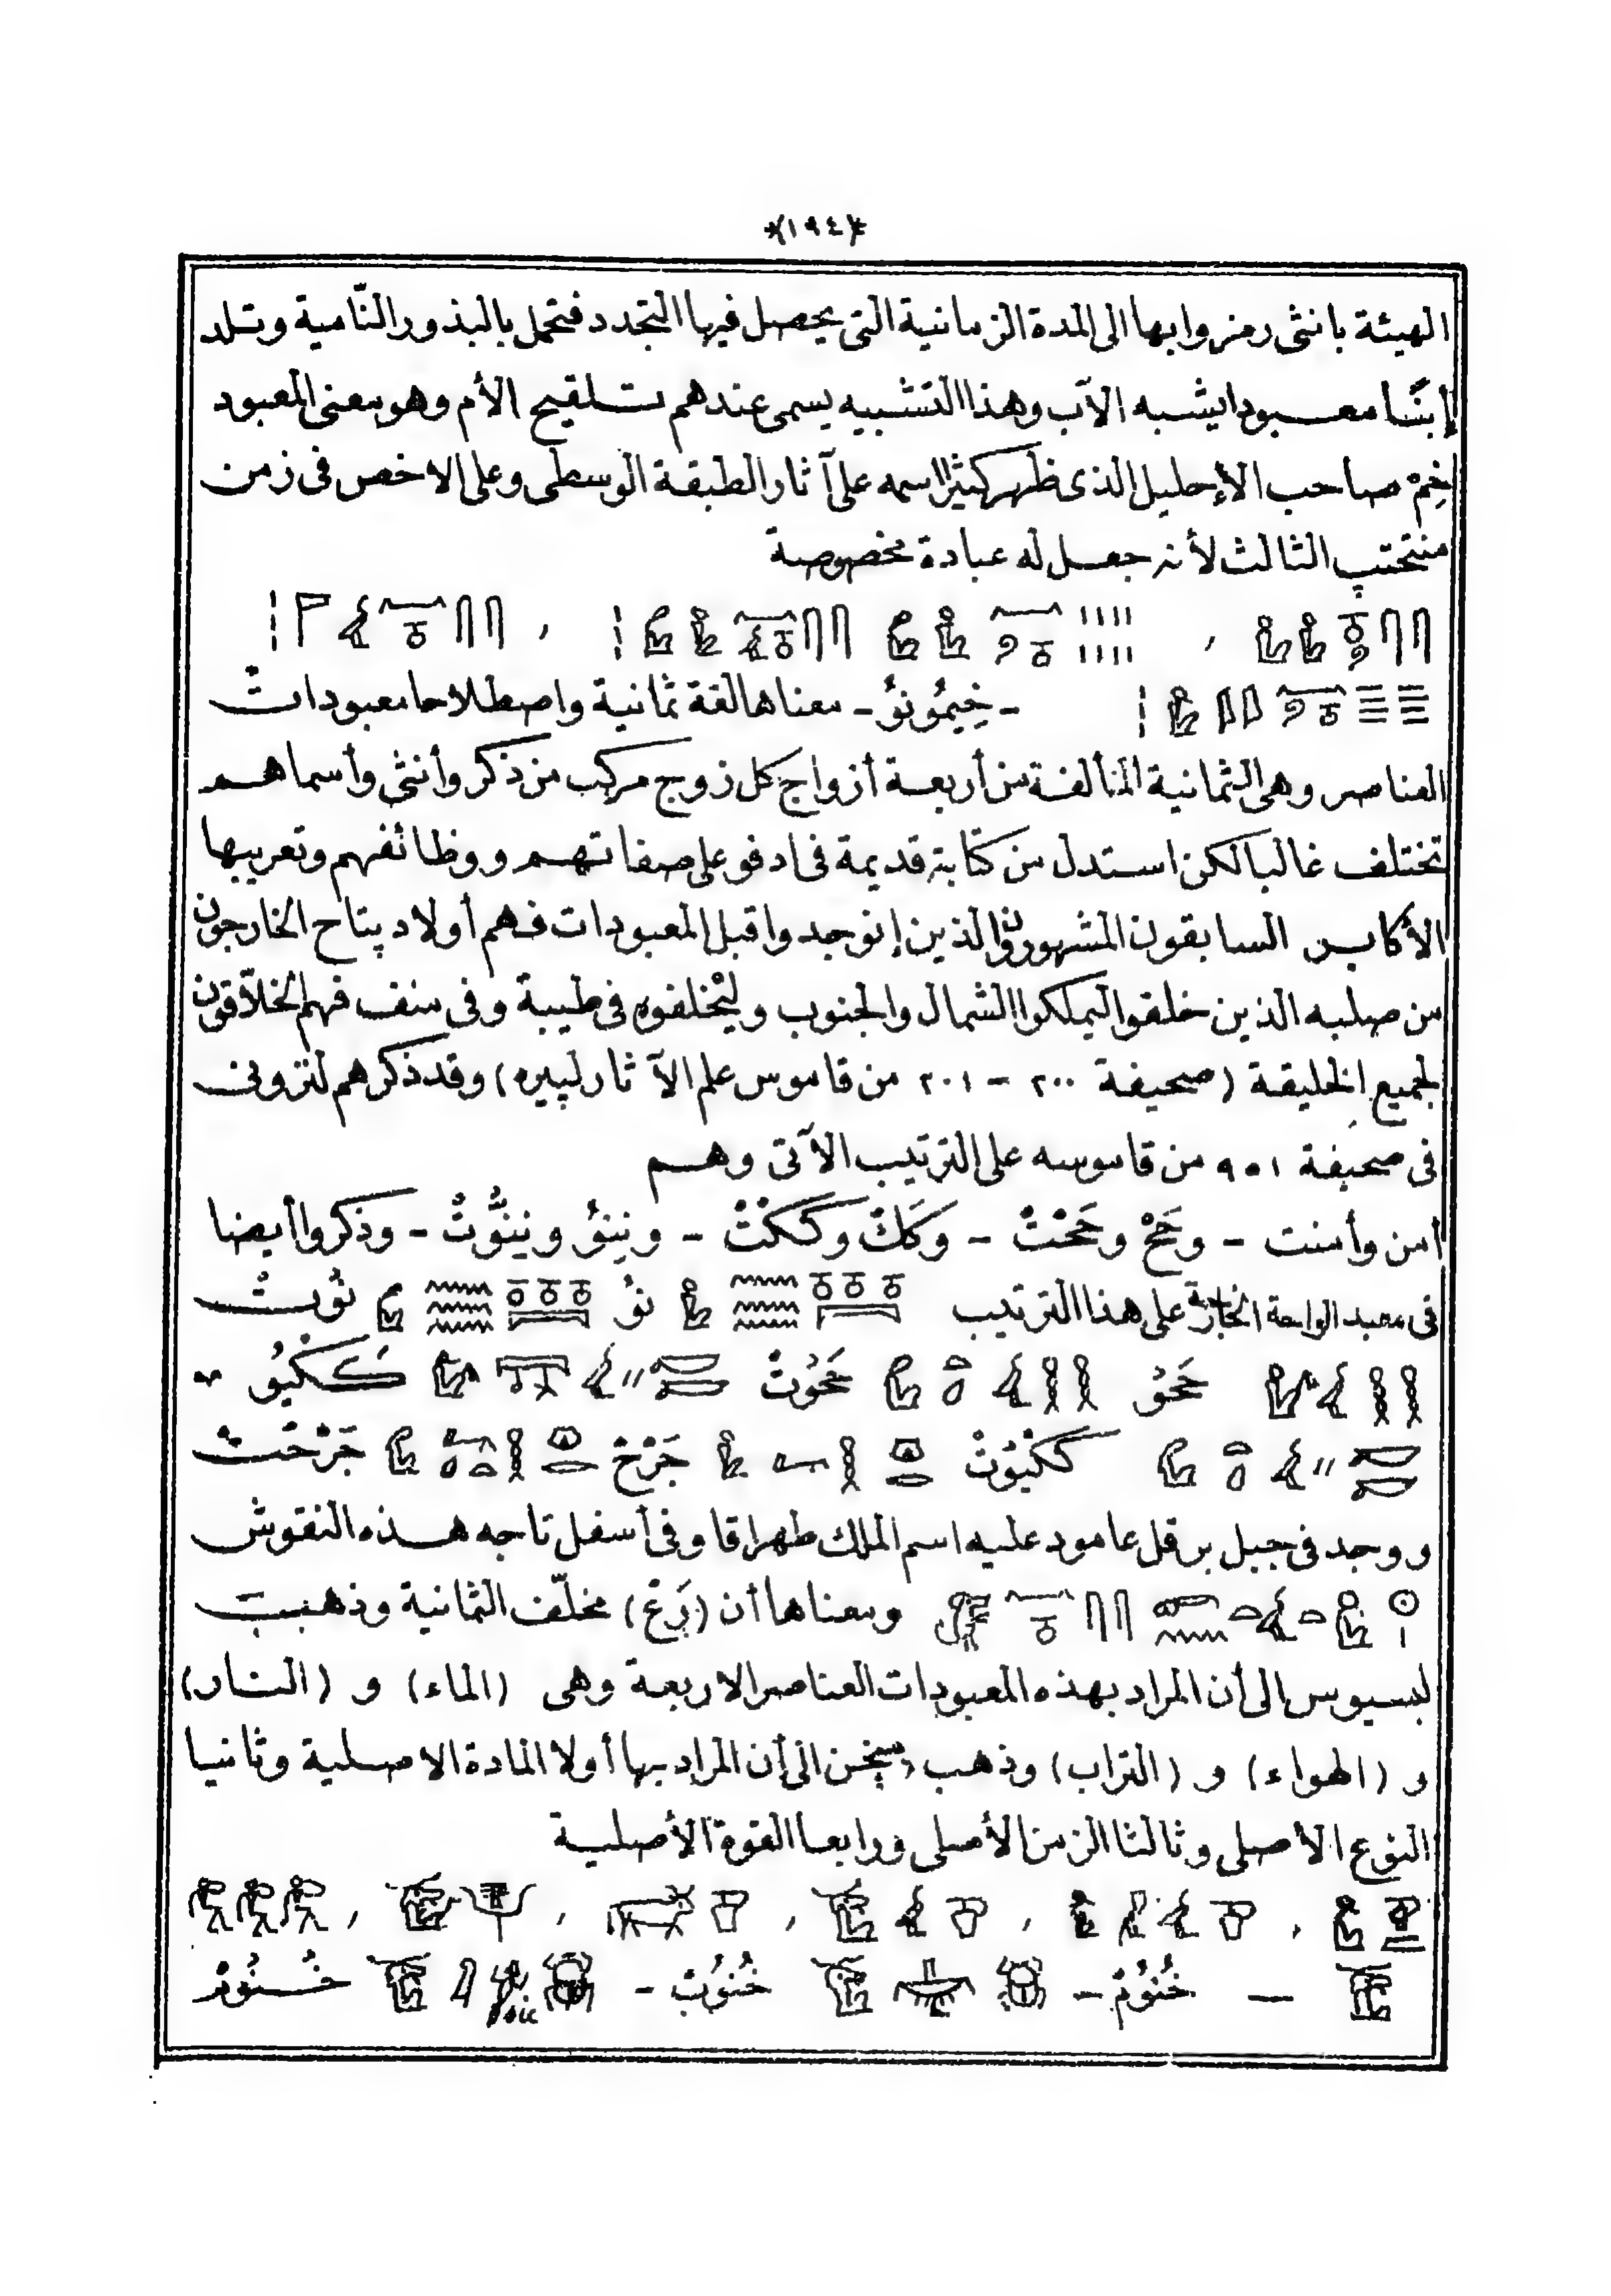 *(١٩٤)*
الهيئة بانثى رمزوا بها الى المدة الزمانية التى يحصل فيها التجدد فتحمل بالبذور النّامية وتلد
إبنًا معبودا يشبه الآب وهذا التشبيه يسمى عندهم تلقيح الأم وهو بمعنى المعبود
خِمْ صاحب الأحليل الذى ظهر كثيرا اسمه على آثار الطبقة الوسطى وعلى الاخص فى زمن
منتحتپ الثالث لأنه جعل له عبادة مخصوصة
،
- خِيمُونوُ - معناها لغة ثمانية واصطلاحا معبودات
العناصر وهى الثمانية المتألفة من أربعة أزواج كل زوج مركب من ذكر وأنثى وأسماهم
تختلف غالبا لكن استدل من كتابة قديمة فى ادفو على صفاتهم ووظائفهم وتعريبها
الأكابر السابقون المشهورون الذين إنوجدوا قبل المعبودات فهم أولاد پتاح الخارجون
من صلبه الذين خلقوا ليملكوا الشمال والجنوب وليخلفوه فى طيبة وفى منف فهم الخلّاقون
لجميع الخليقة (صحيفة ٢٠٠ - ٢٠١ من قاموس علم الآثار لپيره) وقد ذكرهم لنزونى
فى صحيفة ٩٥١ من قاموسه على الترتيب الآتى وهم
أمن وأمنت - وحَحْ وحَحْتْ - وكَكْ وككْتْ - وننوُ وننوُّتْ - وذكروا أيضا
فى معبد الواحة الخارجة على هذا الترتيب نوُ نوُتْ
حَحوُ حَحوُتْ كَكْيوُ -
ككْيوُتْ جَرْحْ جَرْحَتْ
ووجد فى جبل برقل عامود عليه اسم الملك طهراقا وفى أسفل تاجه هذه النقوش
ومعناها أن (رَعْ) مخلّف الثمانية وذهب
لبسيوس الى أن المراد بهذه المعبودات العناصر الاربعة وهى (الماء) و (النار)
و (الهواء) و (التراب) وذهب الى أن المراد بها أولا المادة الاصلية وثانيا
النوع الأصلى وثالثا الزمن الأصلى ورابعا القوة الأصلية
، ، ، ، ،
- خْنُومْ - خْنُوبْ - خْنُومْ